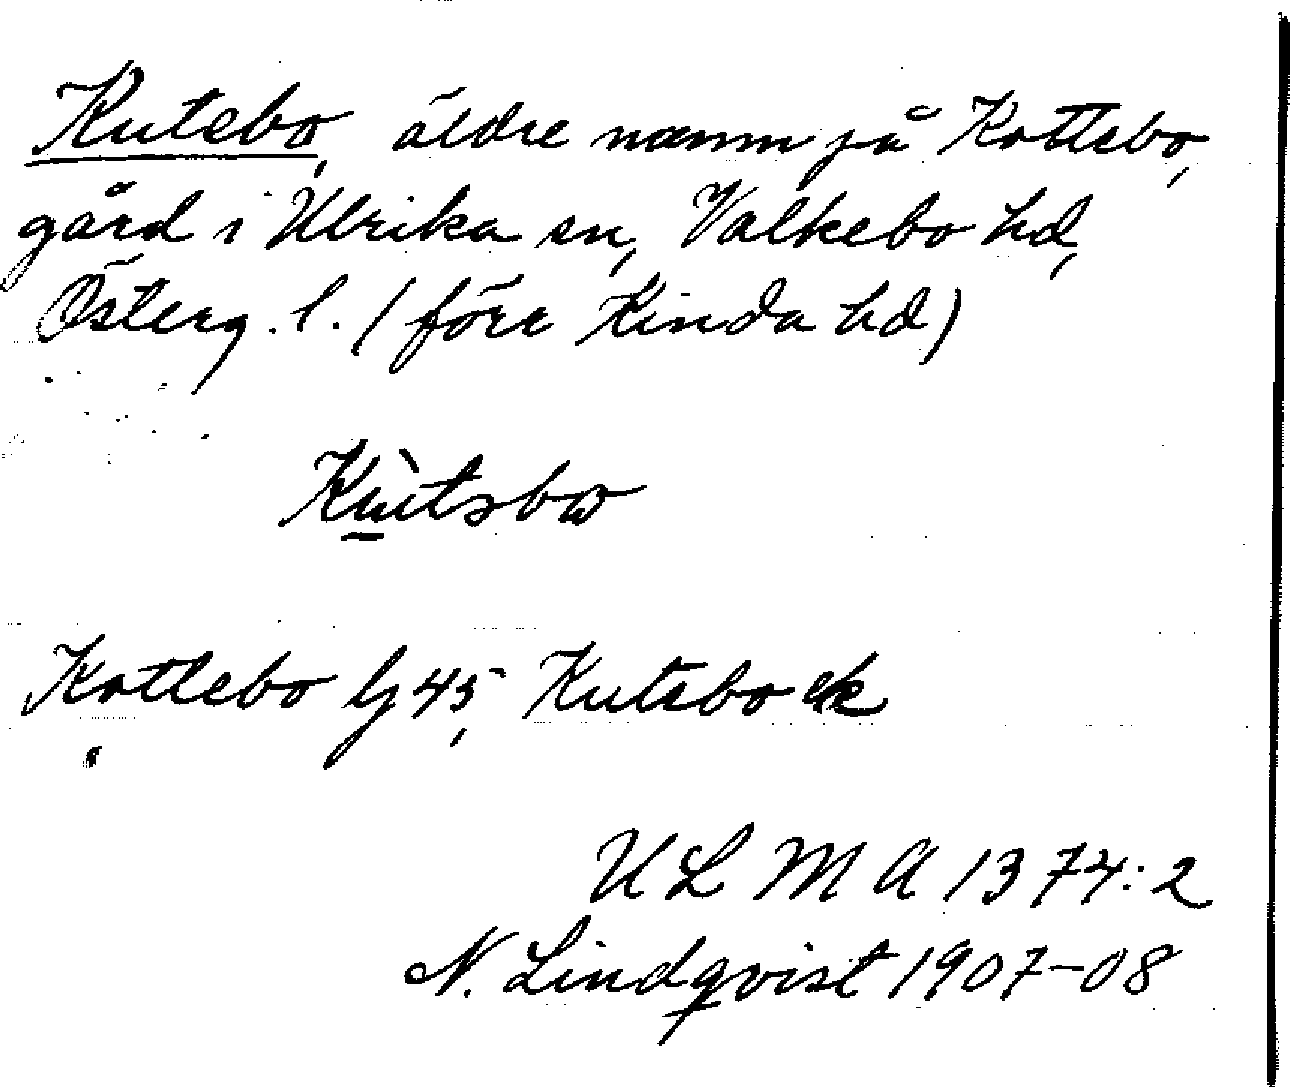 Kutebo, äldre namn på Kottebo,
gård i Ulrika sn, Valkebo hd,
Österg. l. (förr Kinda hd)
Kùtsbω
Kottebo Gj 45, Kutebo ek
U L M A 1374:2
N. Lindqvist 1907-08